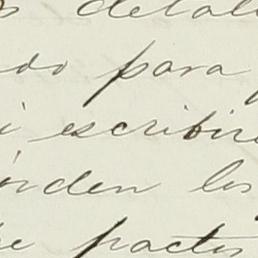 s detal
do para
i escribir
orden los
e pactos